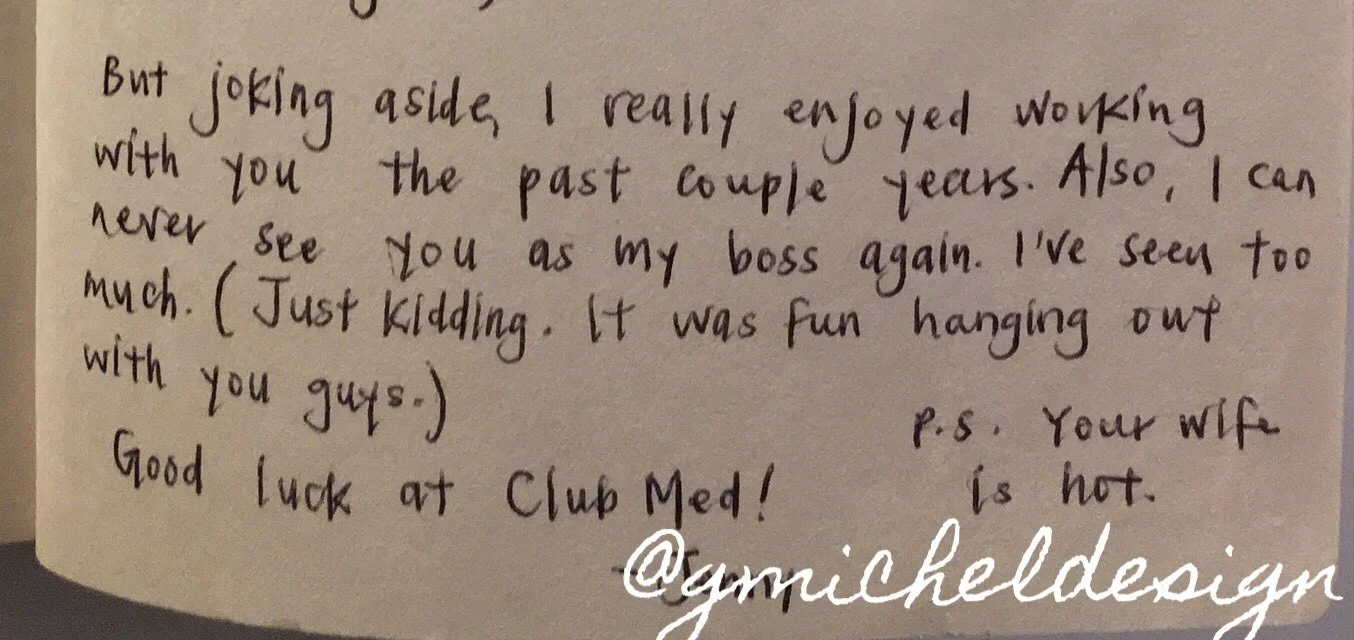 But joking aside, I really enjoyed working
with you the past couple years. Also, I can
never see you as my boss again. I've seen too
much. (Just kidding. It was fun hanging out
with you guys.)
Good luck at Club Med!
P.S. Your wife
is hot.
@gmicheldesign